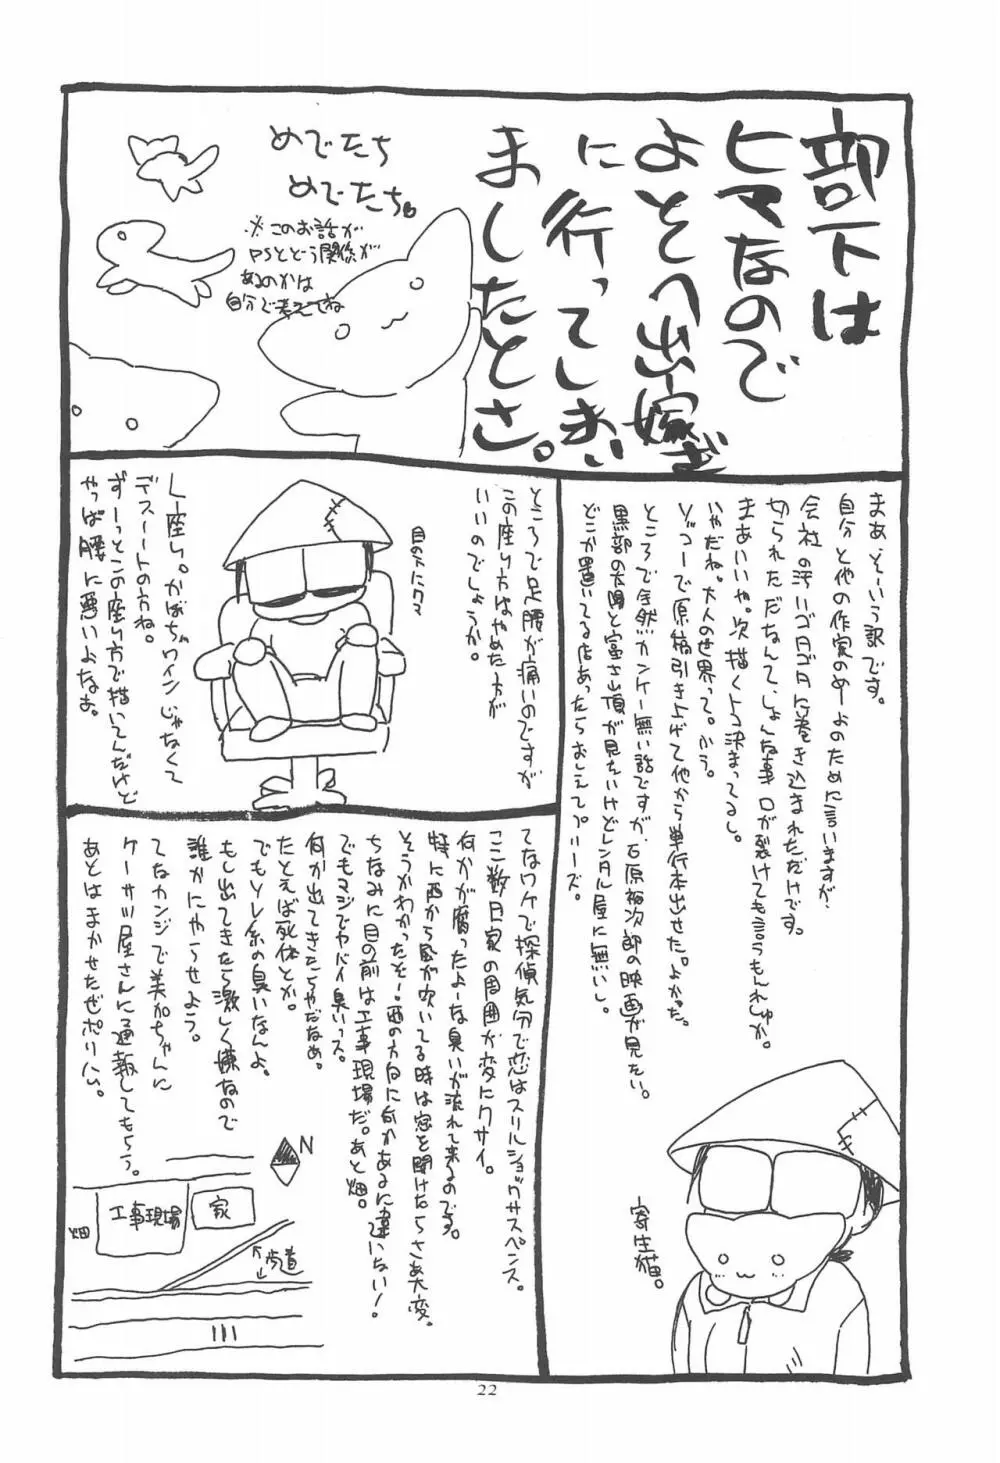 部下は
ヒマなので
よそへ出稼ぎ
に行ってしまい
ましたとさ。
めでたち
めでたち。
※このお話が
PSとどう関係が
あるのかは
自分で考えてね
まあ、そーいう訳です。
自分と他の作家のめーよのために言いますが、
会社の汚いゴタゴタに巻き込まれただけです。
切られただなんて、しょんな事 口が裂けても言うもんれしゅか。
まあいいや。次描くトコ決まってるし。
いやだね。大人の世界って。ふう。
ソッコーで原稿引き上げて他から単行本出せた。よかった。
ところで全然カンケー無い話ですが、石原裕次郎の映画が見たい。
黒部の太陽と富士山頂が見たいけどレンタル屋に無いし。
どこか置いてる店あったらおしえてプリーズ。
寄生猫。
ところで足腰が痛いのですが
この座り方はやめた方が
いいのでしょうか。
目の下にクマ
L座り。かぼちゃワインじゃなくて
デスノートの方ね。
ずーっとこの座り方で描いてんだけど
やっぱ腰に悪いよなあ。
てなワケで探偵気分で恋はスリルショックサスペンス。
ここ数日家の周囲が変にクサイ。
何かが腐ったよーな臭いが流れて来るのです。
特に西から風が吹いてる時は窓を開けたらさあ大変。
そうかわかったぞ!西の方向に何かあるに違いない!
ちなみに目の前は工事現場だ。あと畑。
でもマジでヤバイ臭いっス。
何か出てきたらやだなあ。
たとえば死体とか。
でもソレ系の臭いなんよ。
もし出てきたら激しく嫌なので
誰かにやらせよう。
てなカンジで美加ちゃんに
ケーサツ屋さんに通報してもらう。
あとはまかせたぜポリ公。
N
畑
工事現場
家
歩道
22